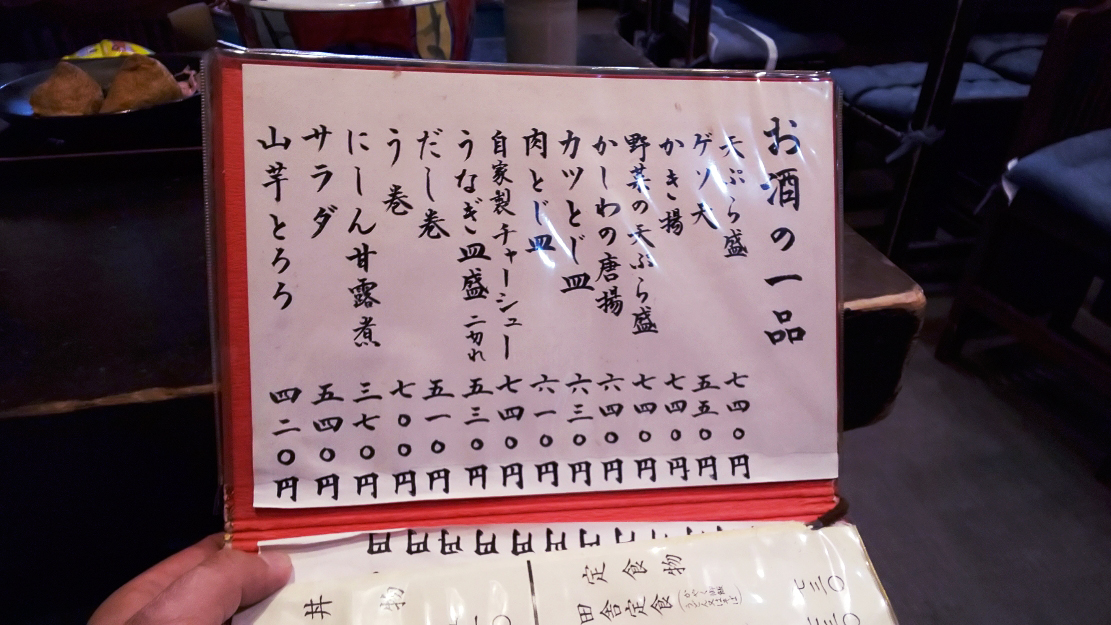 お酒の一品
天ぷら盛 七四〇円
ゲソ天 五五〇円
かき揚 七四〇円
野菜の天ぷら盛 七四〇円
かしわの唐揚 六四〇円
カツとじ皿 六三〇円
肉とじ皿 六一〇円
自家製チャーシュー 七四〇円
うなぎ皿盛 二切れ 五三〇円
だし巻 五一〇円
う巻 七〇〇円
にしん甘露煮 三七〇円
サラダ 五四〇円
山芋とろろ 四二〇円
定食物
田舎定食
七三〇
丼物